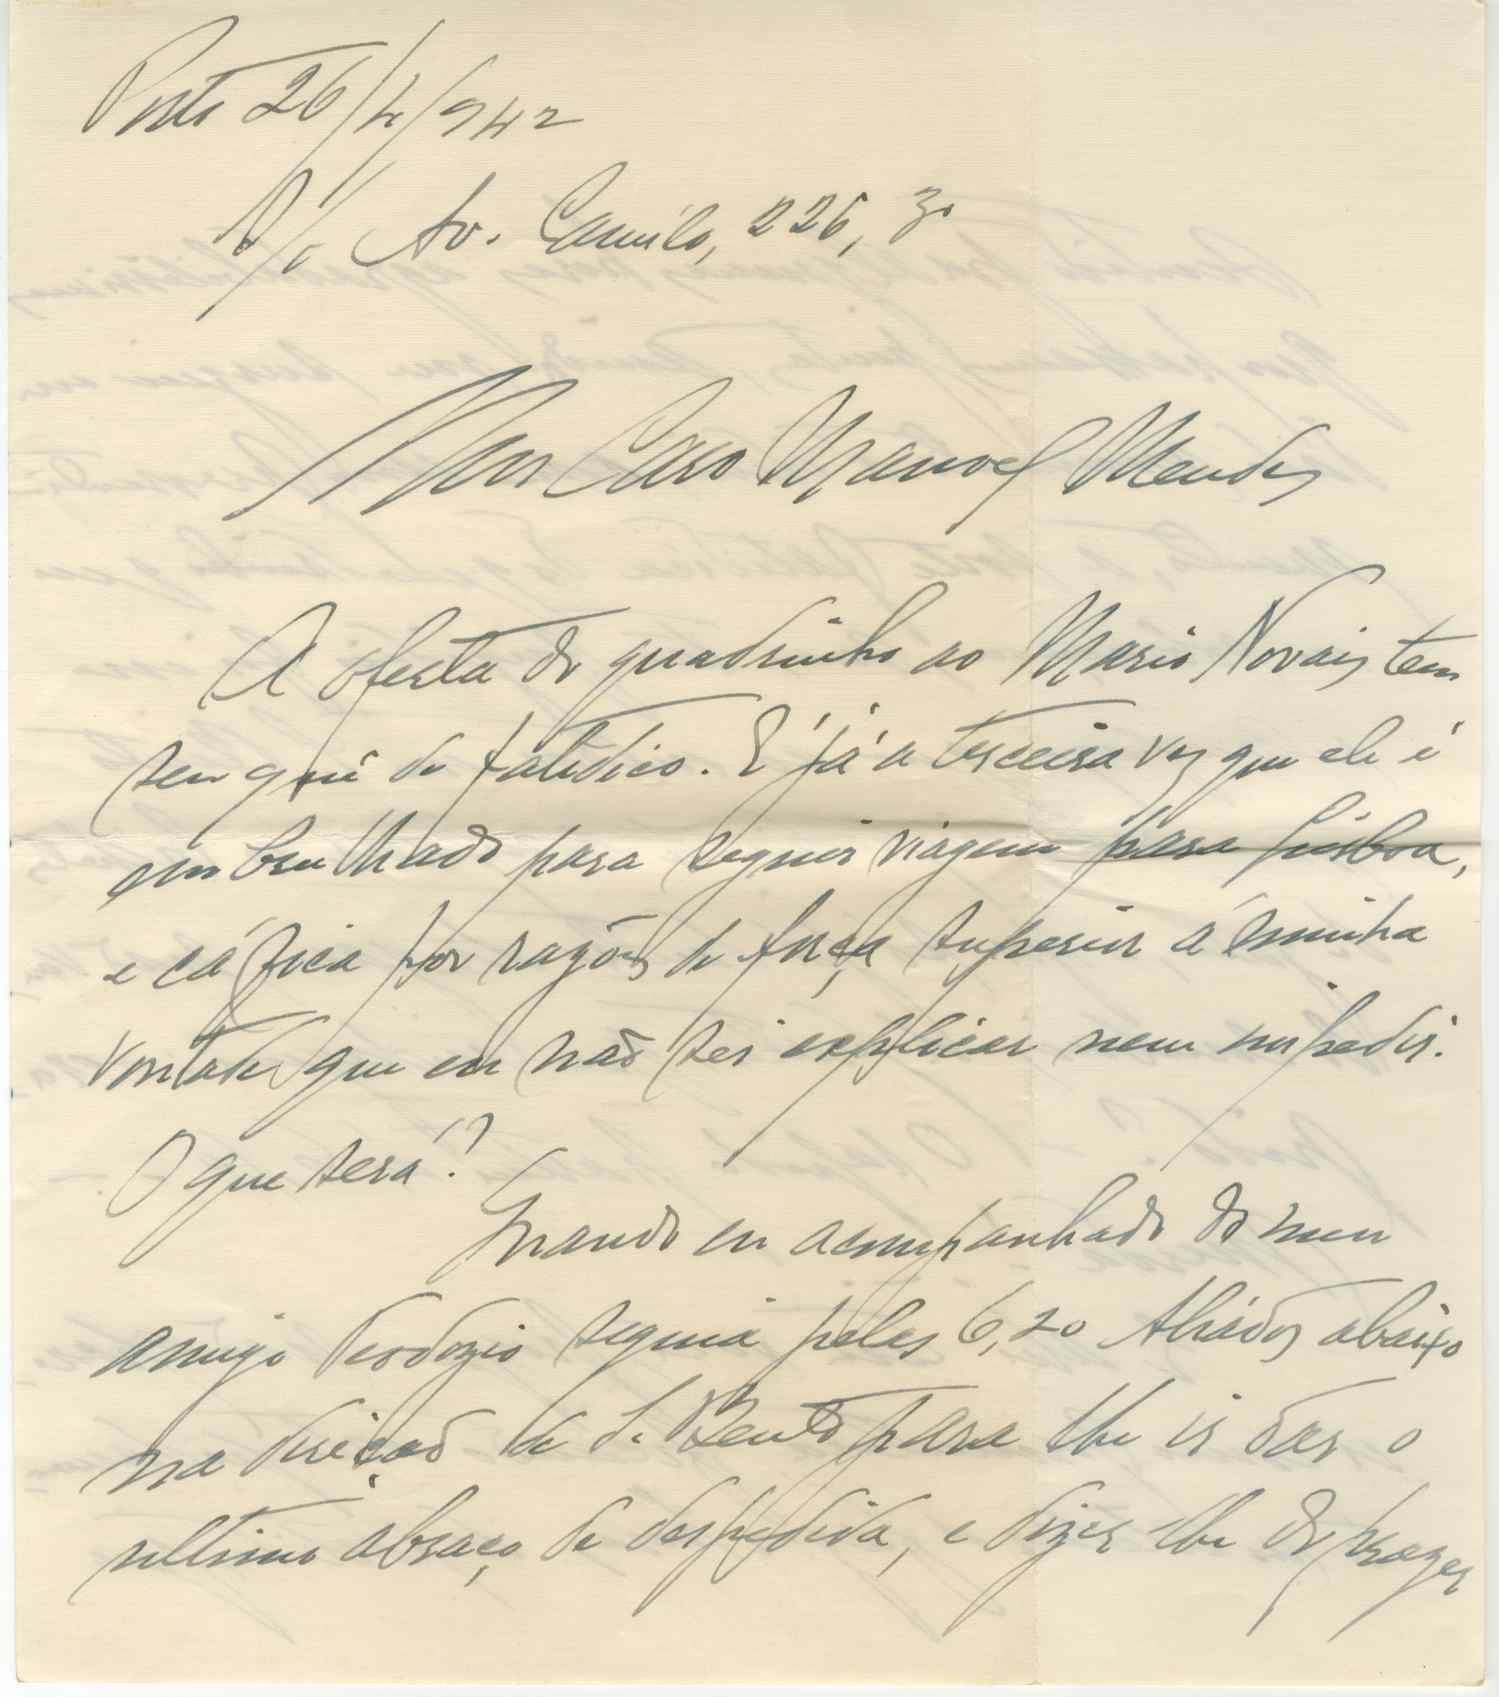 Porto 26/4/942
S/c Av. Camilo, 226, 3º
Meu Caro Manoel Mendes
A oferta do quadrinho ao Mario Novais tem
seu quê de fatidico. É já a terceira vez que ele é
embrulhado para seguir viagem para Lisboa,
e cá fica por razões de força superior á minha
vontade, que eu não sei explicar nem impedir.
O que será?
Quando eu acompanhado do meu
amigo Teodozio seguia pelas 6,20 Aliados abaixo
na direção de S. Bento para lhe ir dar o
ultimo abraço, de despedida, e dizer lhe do prazer